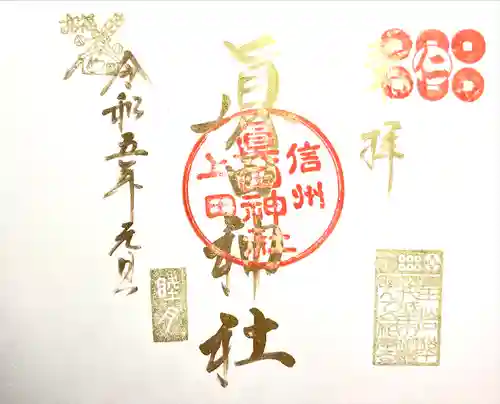 奉拝
眞田神社
信州
眞田神社
上田
令和五年元旦
睦月